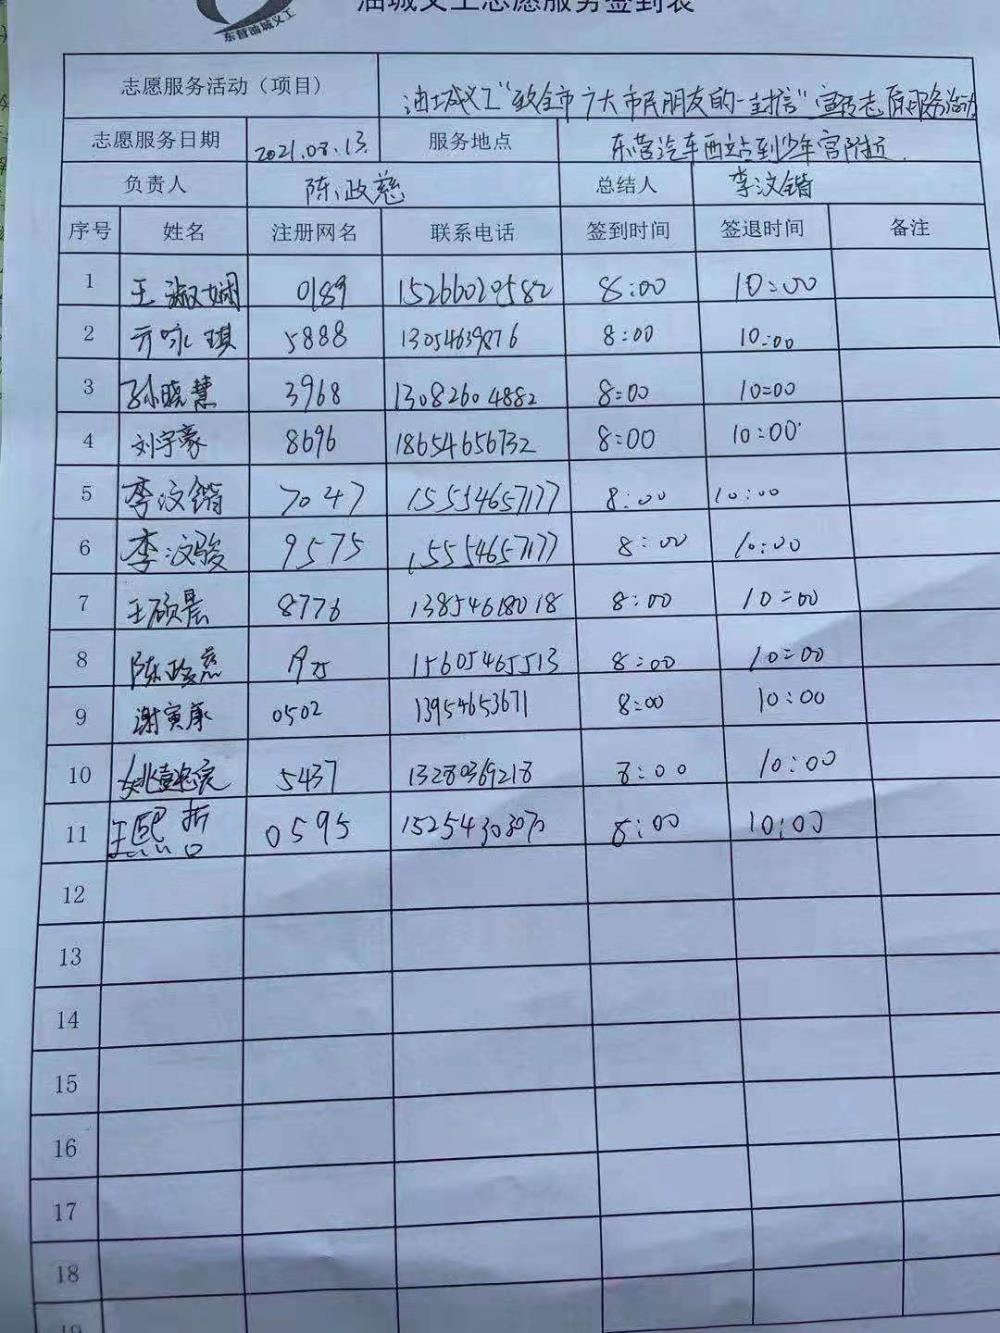 东营油城义工
油城义工志愿服务签到表
志愿服务活动（项目） 油城义工“致全市广大市民朋友的一封信”宣传志愿服务活动
志愿服务日期 2021.08.13. 服务地点 东营汽车西站到少年宫附近.
负责人 陈政慈 总结人 李汶锴
序号 姓名 注册网名 联系电话 签到时间 签退时间 备注
1 王淑娴 0189 15266020582 8:00 10:00
2 亓咏琪 5888 13054639876 8:00 10:00
3 孙晓慧 3968 13082604882 8:00 10:00
4 刘宇豪 8696 18654656732 8:00 10:00
5 李汶锴 7047 15554657177 8:00 10:00
6 李汶骏 9575 15554657177 8:00 10:00
7 王硕晨 8776 13854618018 8:00 10:00
8 陈政慈 15605465513 8:00 10:00
9 谢寅承 0502 13954653671 8:00 10:00
10 5437 13280369218 8:00 10:00
11 王熙哲 0595 15254303070 8:00 10:00
12
13
14
15
16
17
18
19